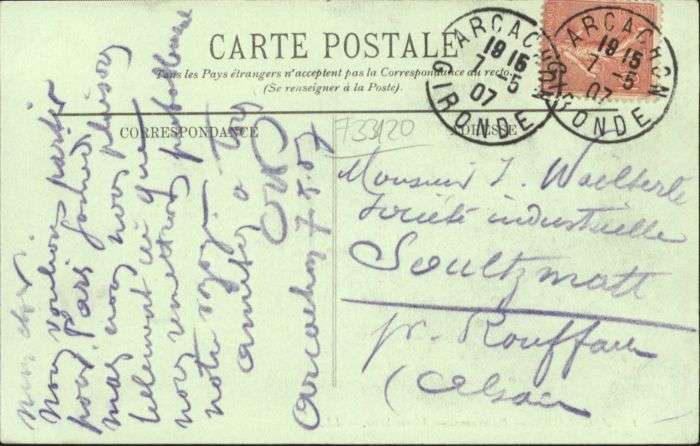 CARTE POSTALE
Tous les Pays étrangers n'acceptent pas la Correspondance au recto
(Se renseigner à la Poste).
CORRESPONDANCE
ADRESSE
F33120
ARCACHON
19 15
7 - 5
07
GIRONDE
ARCACHON
19 15
7 - 5
07
GIRONDE
mon cher
Nous voulions partir
pour Paris
mais nous nous plaisons
tellement ici que
nous remettrons
notre
amitiés à tous
Arcachon 7.5.07
Monsieur J.
Société industrielle
Soultzmatt
pr. Rouffach
(Alsace